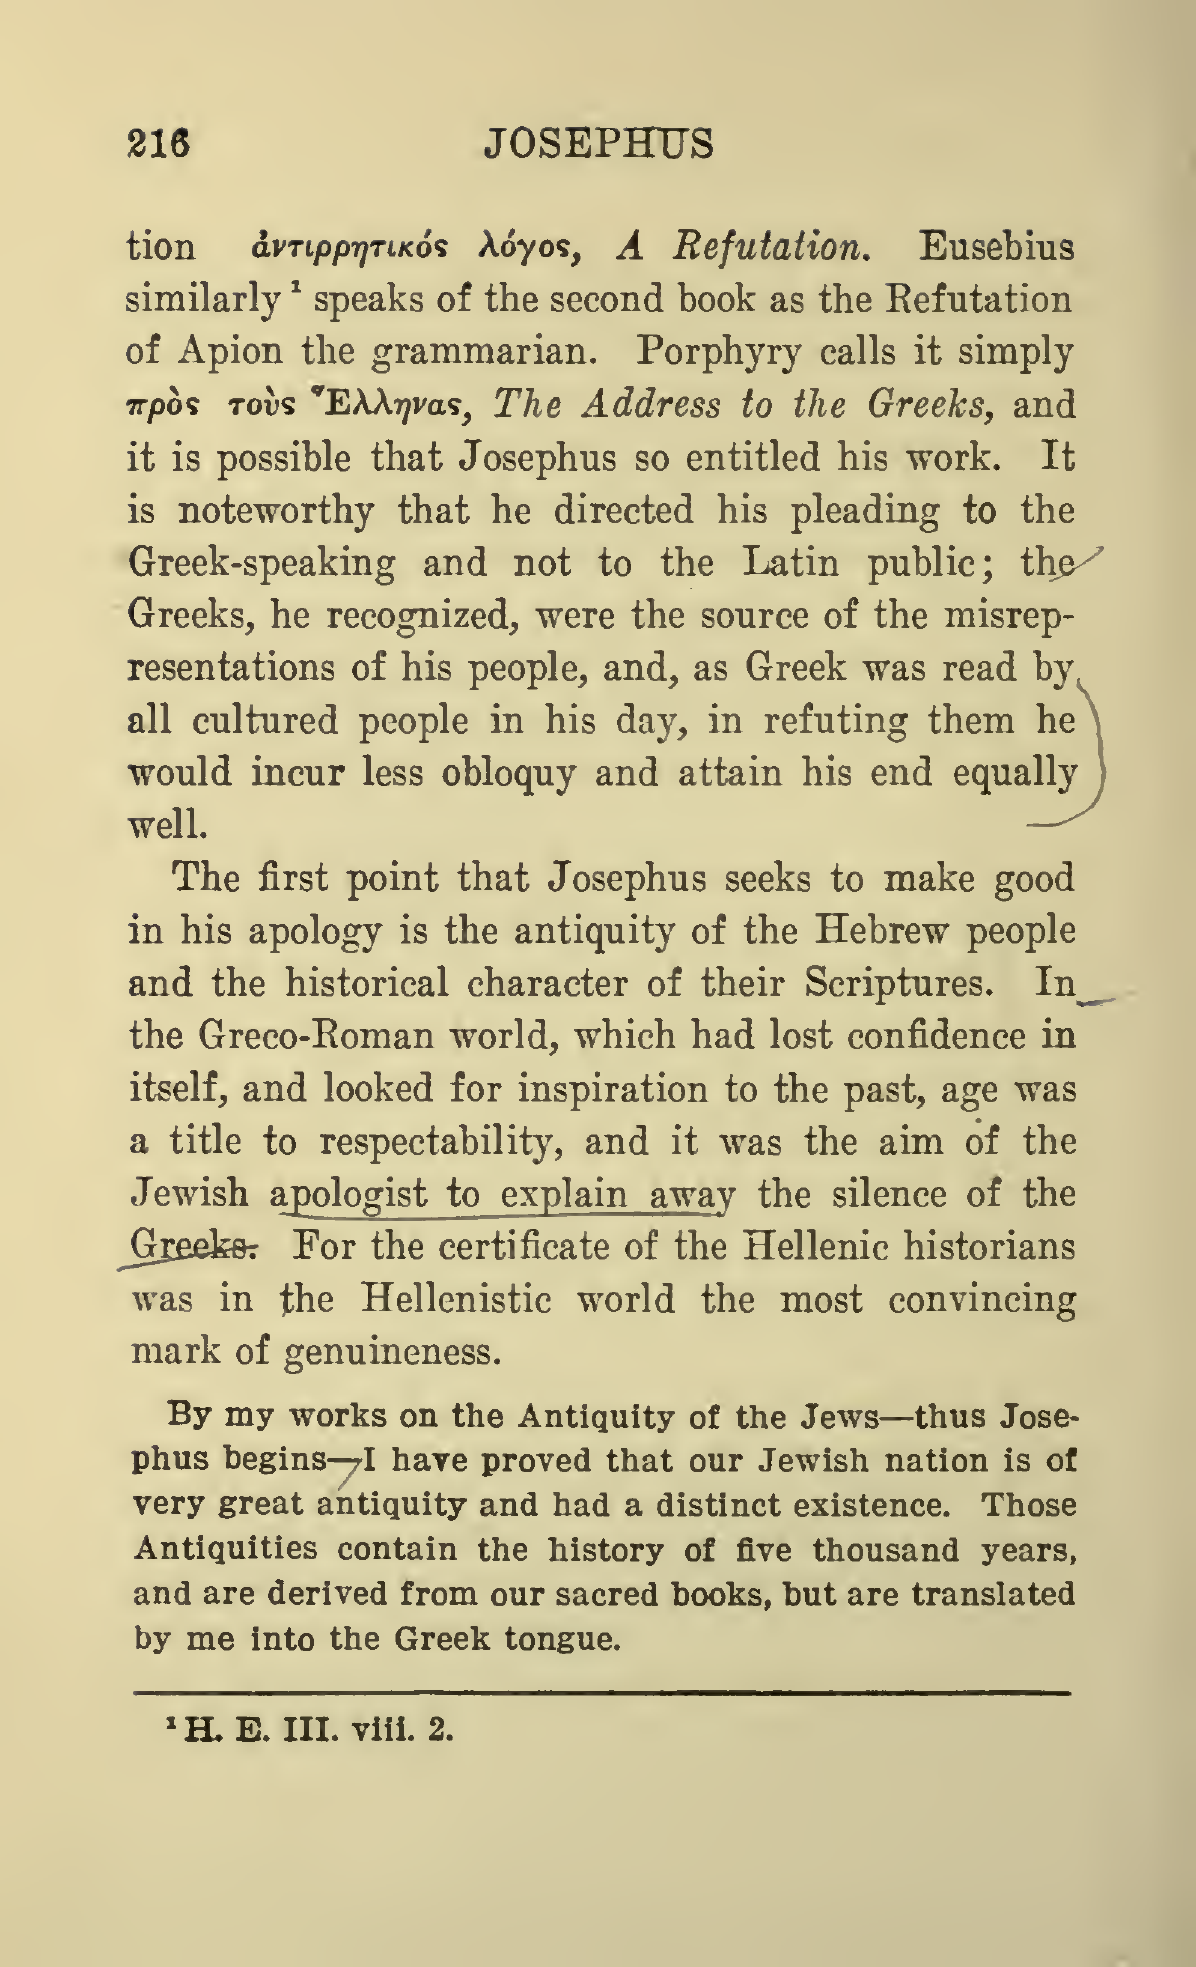 216 JOSEPHUS
tion ἀντιρρητικός λόγος, A Refutation. Eusebius
similarly¹ speaks of the second book as the Refutation
of Apion the grammarian. Porphyry calls it simply
πρὸς τοὺς Ἕλληνας, The Address to the Greeks, and
it is possible that Josephus so entitled his work. It
is noteworthy that he directed his pleading to the
Greek-speaking and not to the Latin public; the
Greeks, he recognized, were the source of the misrep-
resentations of his people, and, as Greek was read by
all cultured people in his day, in refuting them he
would incur less obloquy and attain his end equally
well.
The first point that Josephus seeks to make good
in his apology is the antiquity of the Hebrew people
and the historical character of their Scriptures. In
the Greco-Roman world, which had lost confidence in
itself, and looked for inspiration to the past, age was
a title to respectability, and it was the aim of the
Jewish apologist to explain away the silence of the
Greeks. For the certificate of the Hellenic historians
was in the Hellenistic world the most convincing
mark of genuineness.
By my works on the Antiquity of the Jews—thus Jose-
phus begins—I have proved that our Jewish nation is of
very great antiquity and had a distinct existence. Those
Antiquities contain the history of five thousand years,
and are derived from our sacred books, but are translated
by me into the Greek tongue.
¹ H. E. III. viii. 2.